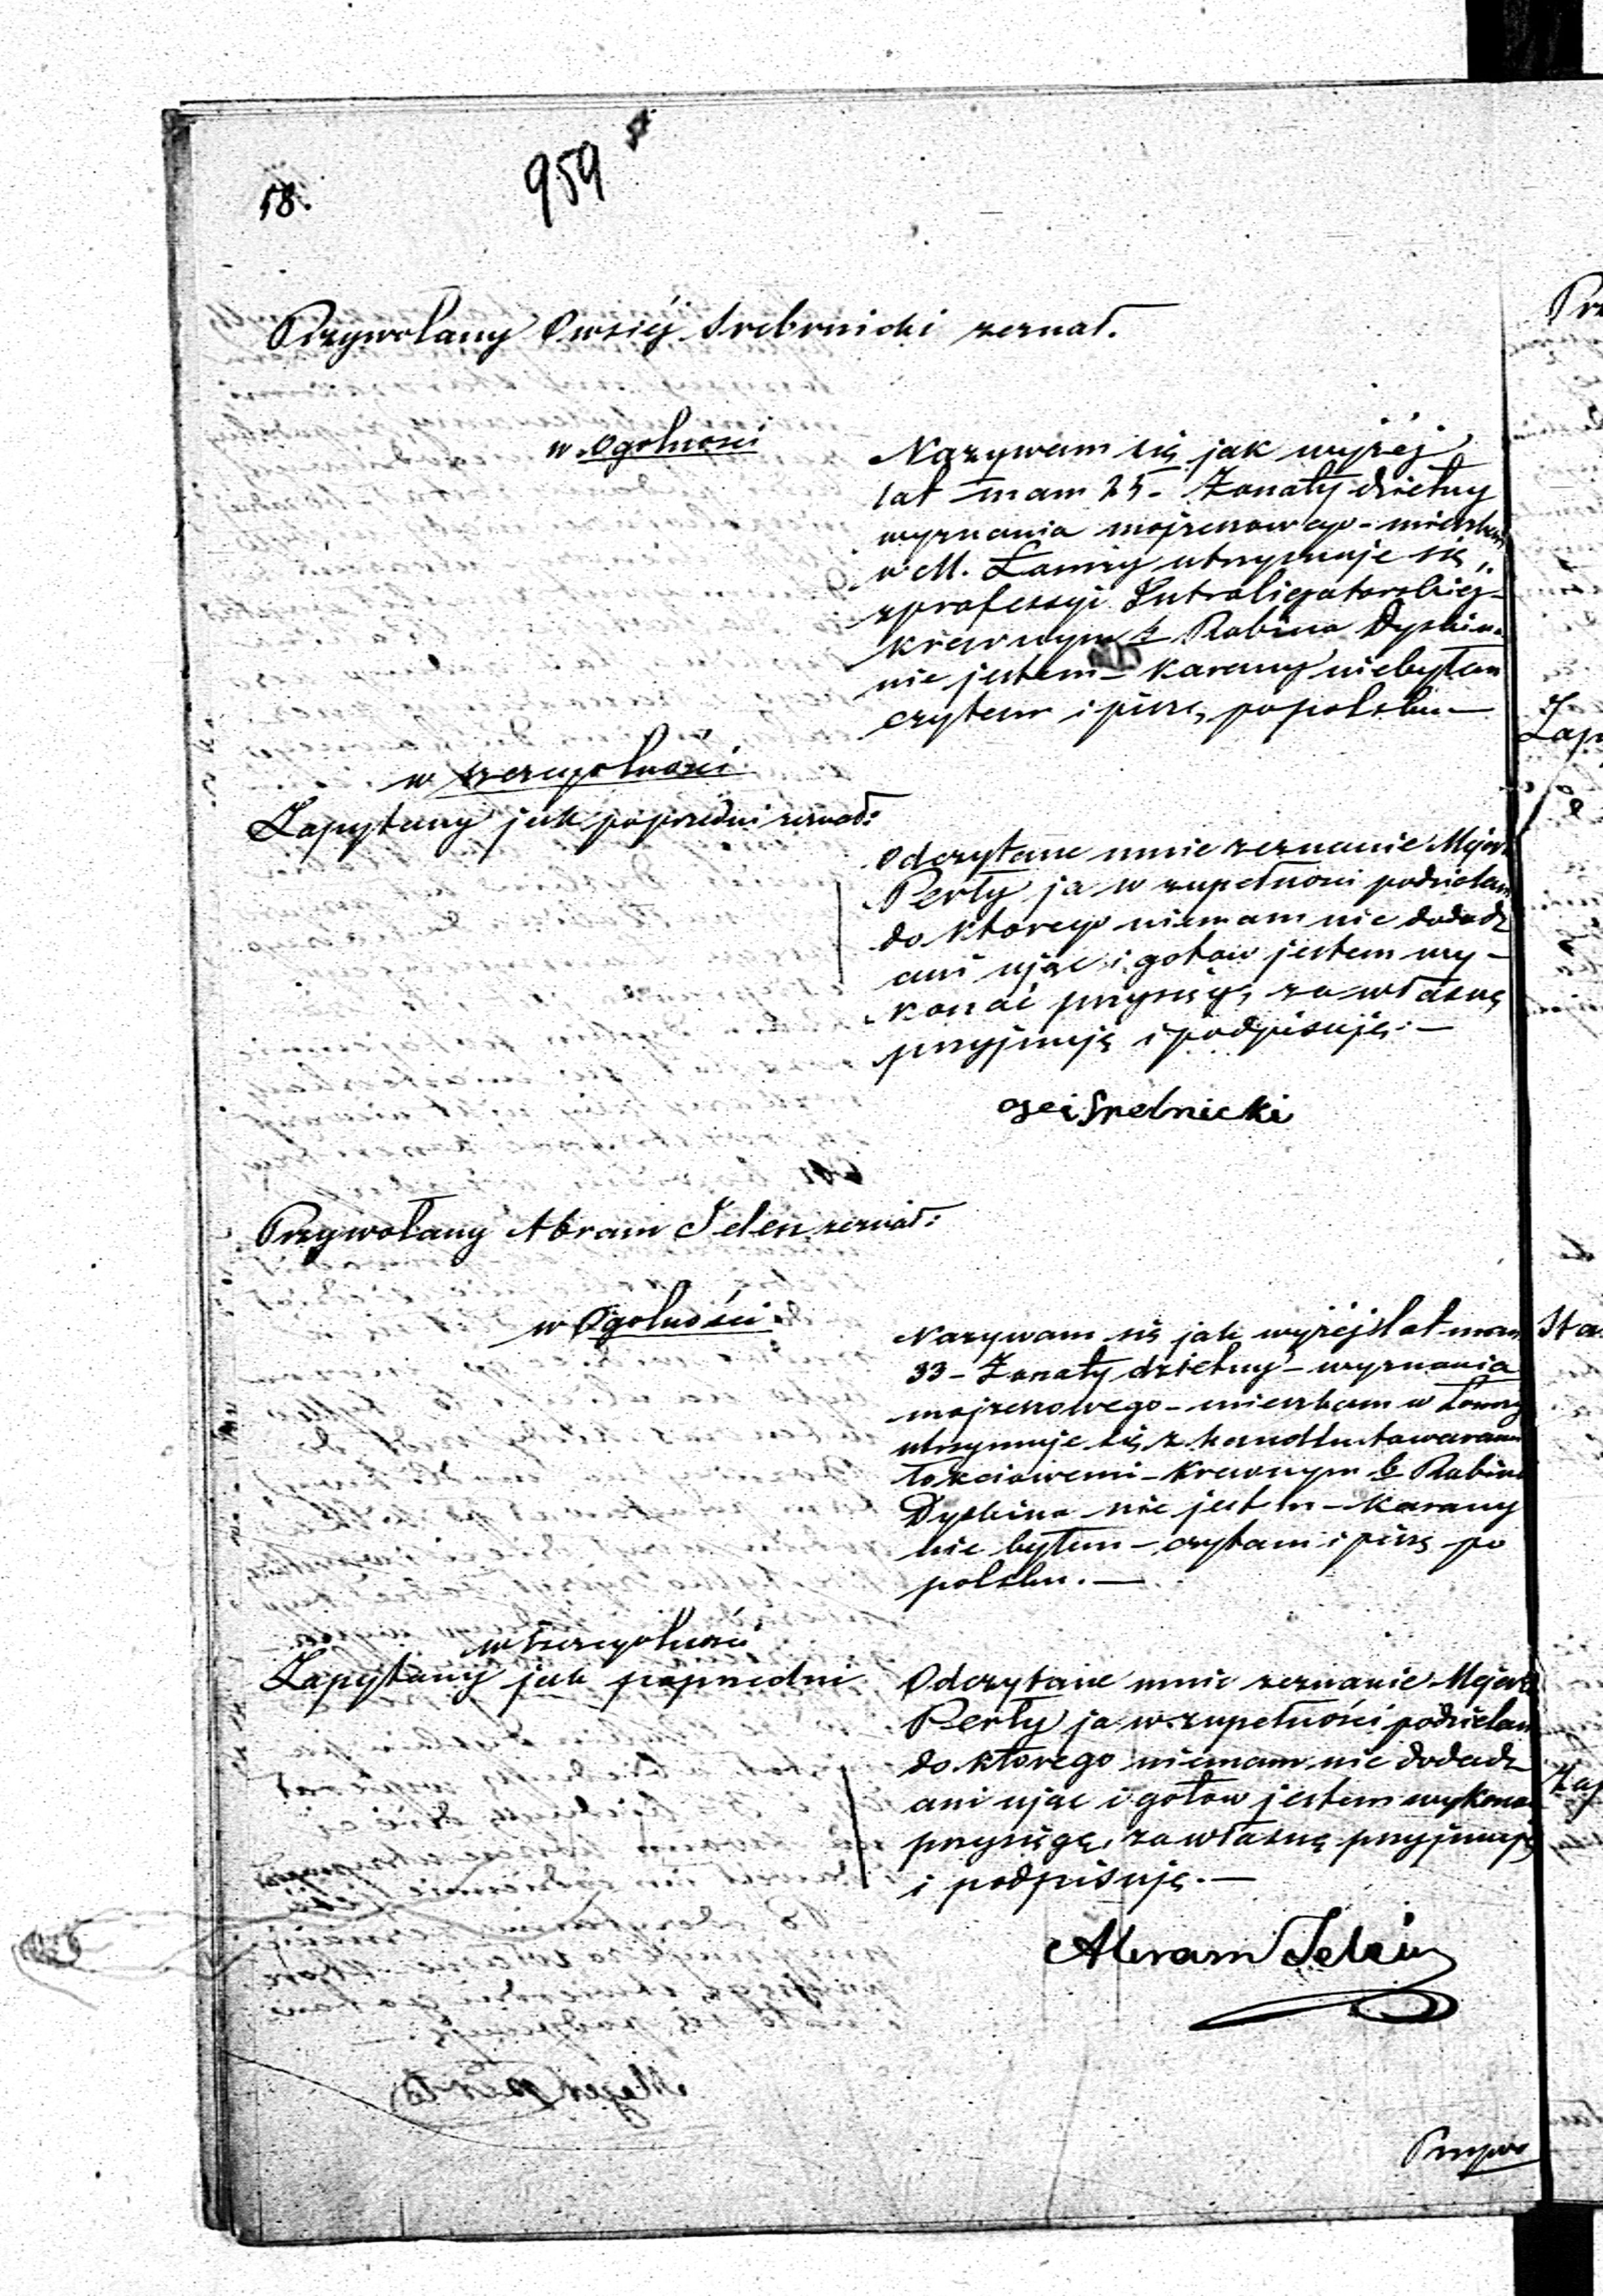 18.
959
Przywołany Owsiej Srebrnicki zeznał.
w Ogolnosci
Nazywam się jak wyżéj
lat mam 25 - Żonaty dzietny
wyznania mojżeszowego - mieszkam
w M. Łomży utrzymuje się
z professyi Introligatorskiej -
krewnym b Rabina Dyskina
nie jestem - karany niebyłem
czytam i piszę popolsku. —
w szczegolności
Zapytany jak poprzedni zeznał:
Odczytane mnie zeznanie Mejera
Perły ja w zupełnosci podzielam
do ktorego niemam nic dodadz
ani ująć i gotow jestem wy-
konać przysięgę, za własną
przyjmuję i podpisuję. —
Osei Srebnicki
Przywołany Abram Jelen zeznał:
w Ogolności.
Nazywam się jak wyżéj lat mam
33 - Żonaty dzietny - wyznania
mojżeszowego - mieszkam w Łomży
utrzymuje się z handlu towarami
łokciowemi - krewnym b Rabina
Dyskina nie jestem - karany
nie byłem - czytam i piszę po
polsku. —
w szczegolności
Zapytany jak poprzedni
Odczytane mnie zeznanie Mejera
Perły ja w zupełności podzielam
do ktorego niemam nic dodadz
ani ująć i gotow jestem wykonać
przysięgę, za własną przyjmuję
i podpisuję. —
Abram Jeleń
Przywo